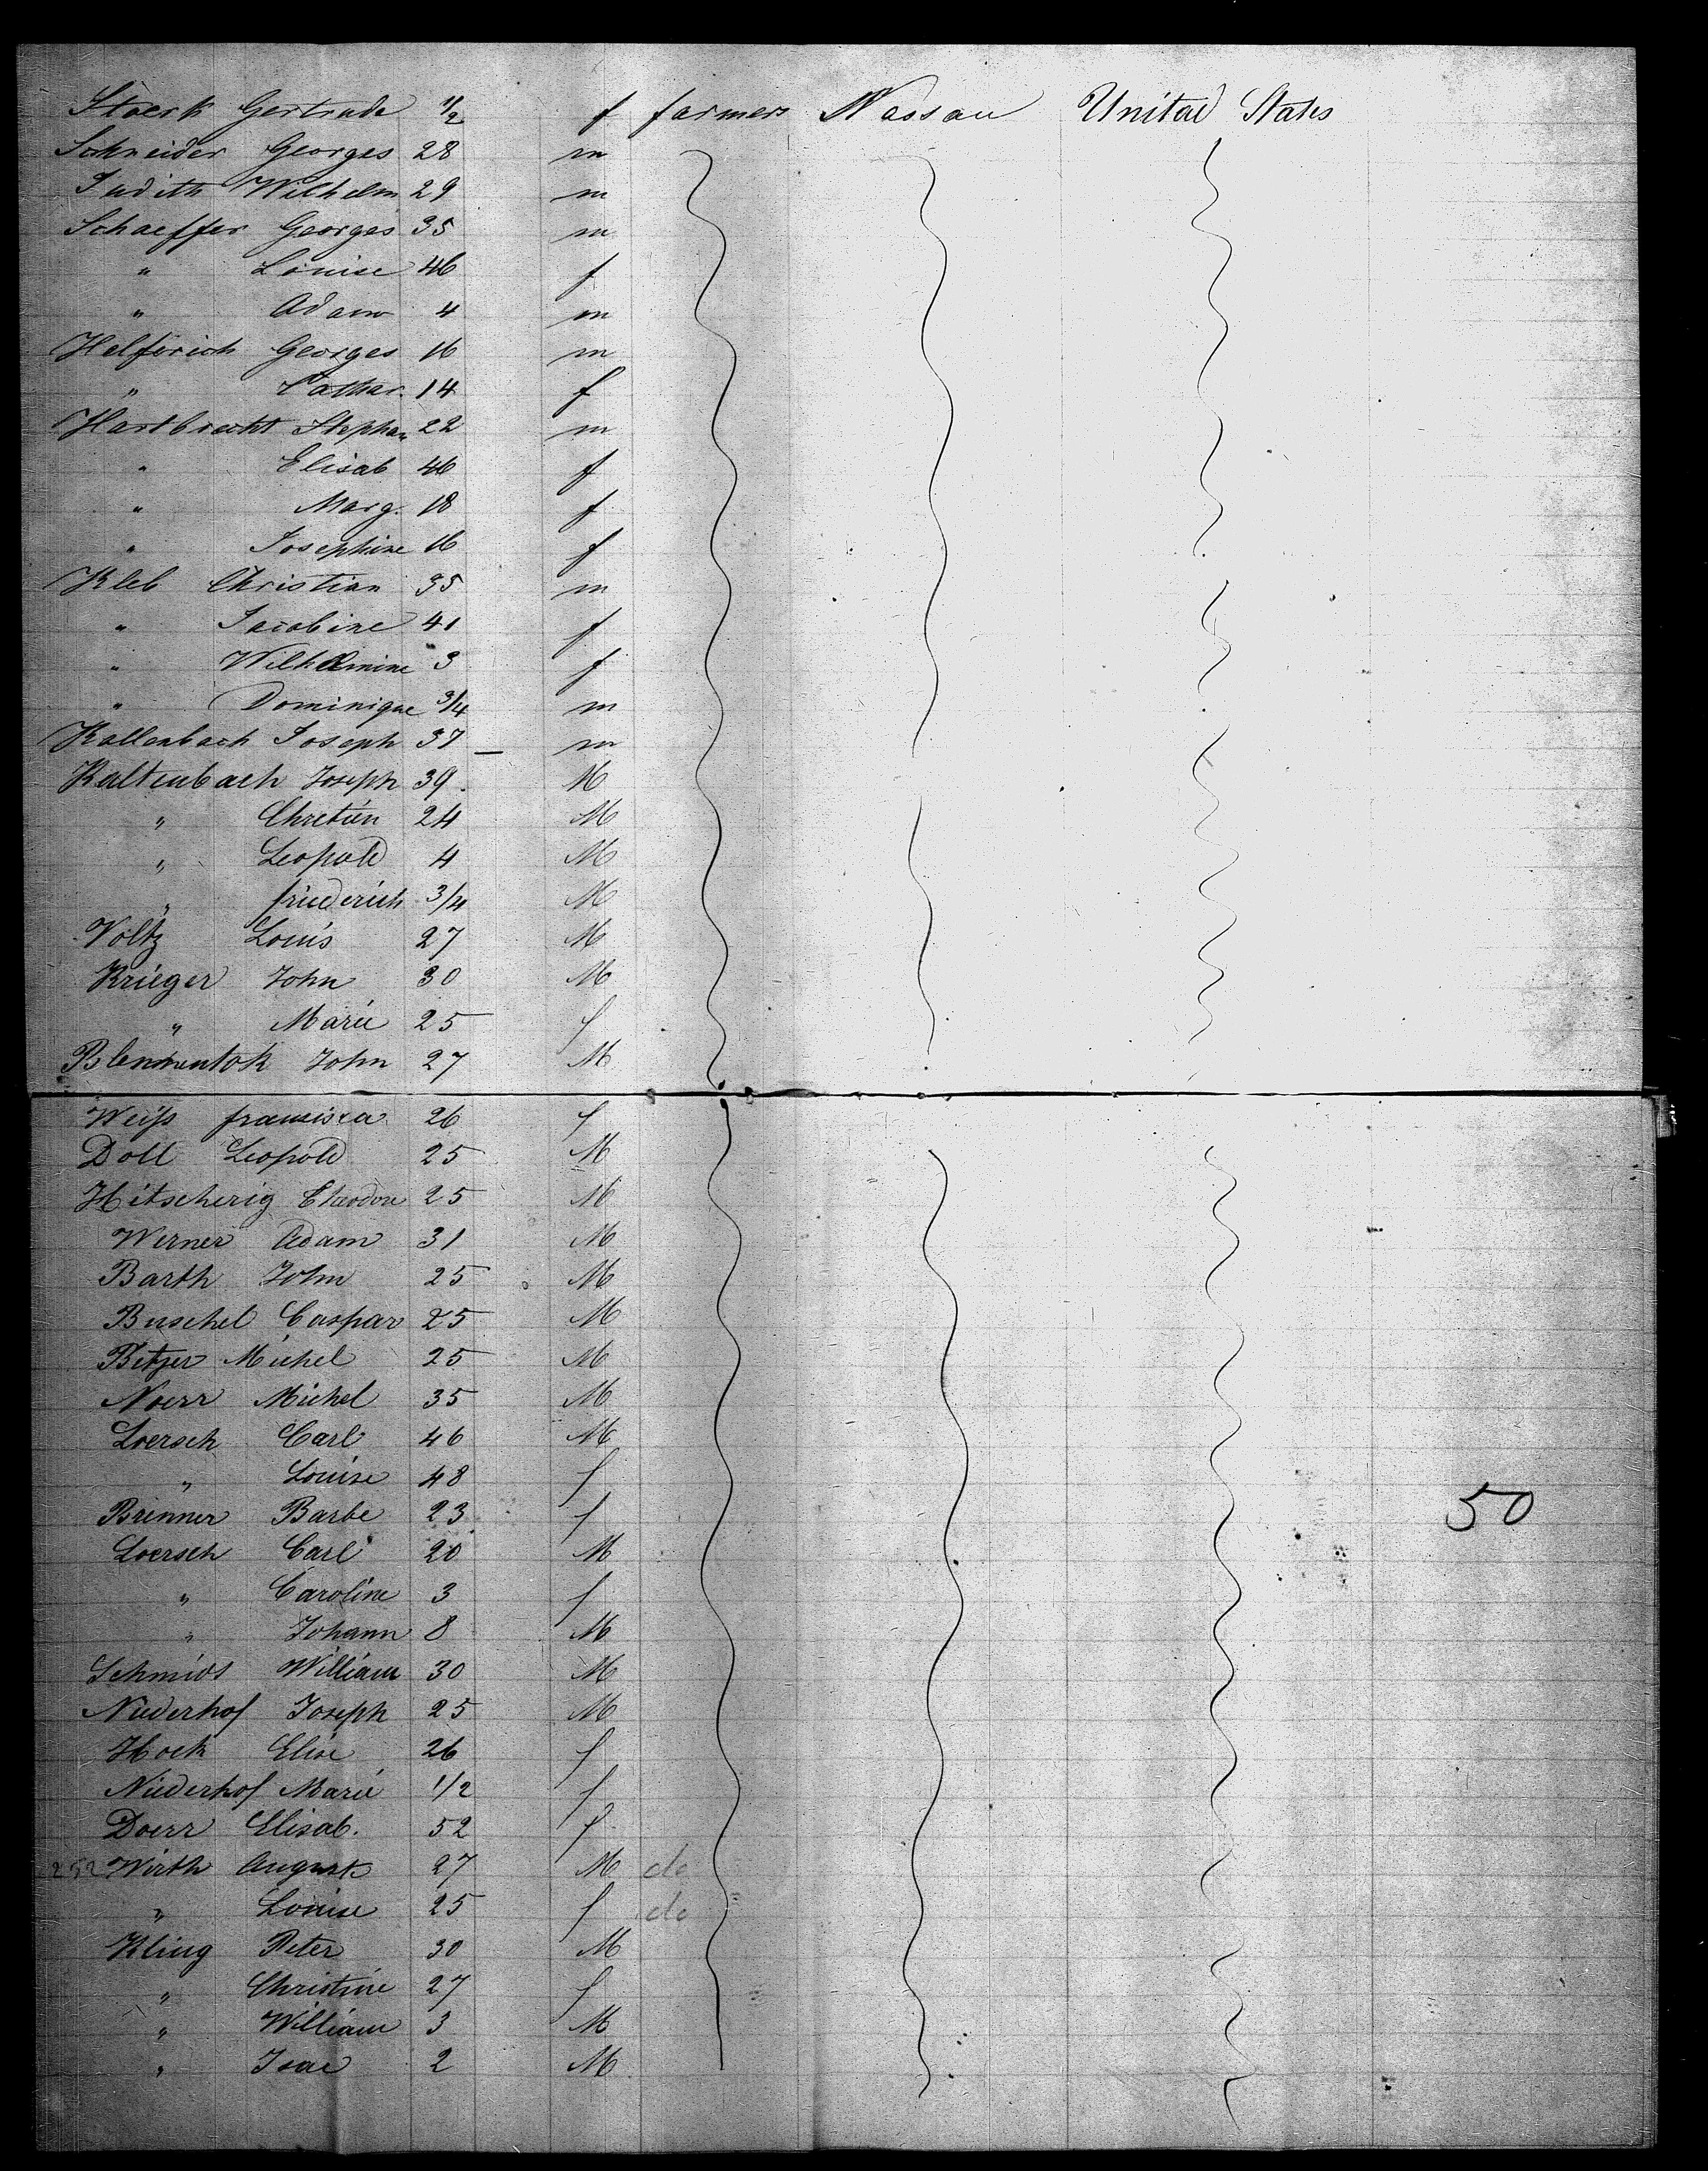 Stoerk Gertrude 1/2 f farmers Nassau United States
Schneider Georges 28 m
Judith Wilhelm 29 m
Schaeffer Georges 35 m
" Louise 46 f
" Adam 4 m
Helfirich Georges 16 m
" Cathar. 14 f
Hartbrecht Stephan 22 m
" Elisab 46 f
" Marg. 18 f
" Josephine 16 f
Kleb Christian 35 m
" Jacobine 41 f
" Wilhelmine 3 f
" Dominique 3/4 m
Kallenbach Joseph 37 – m
Kaltenbach Joseph 39. M
" Chretien 24 M
" Leopold 4 M
" friederich 3/4 M
Voltz Louis 27 M
Krieger John 30 M
" Marie 25 f
John 27 M
Weiss fransisca 26 f
Doll Leopold 25 M
Hitscherig Theodore 25 M
Werner Adam 31 M
Barth John 25 M
Buschel Caspar 25 M
Betzer Michel 25 M
Noerr Michel 35 M
Loersch Carl 46 M
" Louise 48 f
Brenner Barbe 23 f 50
Loersch Carl 20 M
" Caroline 3 f
" Johann 8 M
Schmidt William 30 M
Niederhof Joseph 25 M
Hock Elise 26 f
Niederhof Marie 1/2 f
Doerr Elisab. 52 f
252 Wirth August 27 M do
" Louise 25 f do
Kling Peter 30 M
" Christine 27 f
" William 3 M
" Isac 2 M